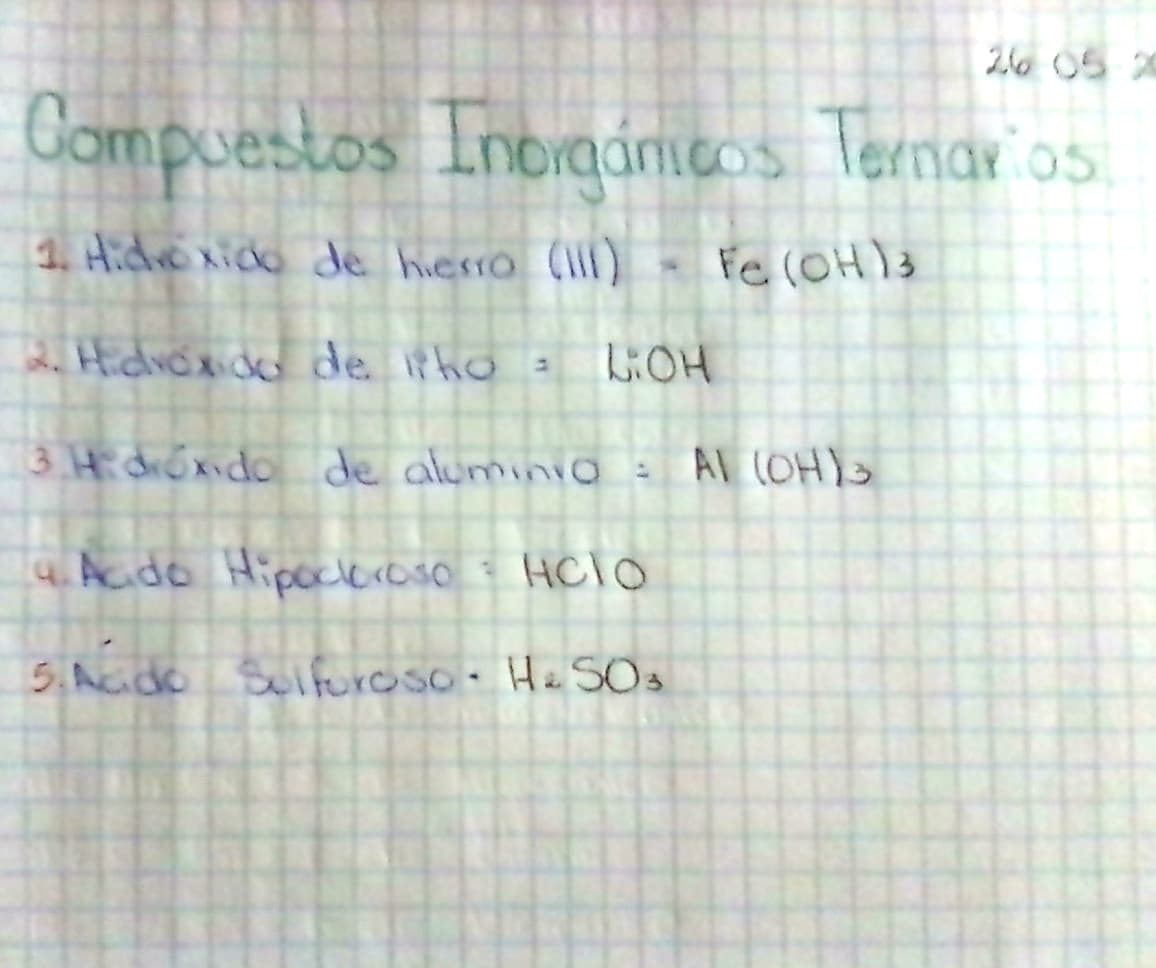 26 05 20
Compuestos Inorgánicos Ternarios
1. Hidróxido de hierro (III) = Fe(OH)3
2. Hidróxido de litio = LiOH
3 Hidróxido de aluminio = Al (OH)3
4. Acido Hipocloroso = HClO
5. Ácido Sulfuroso = H2SO3